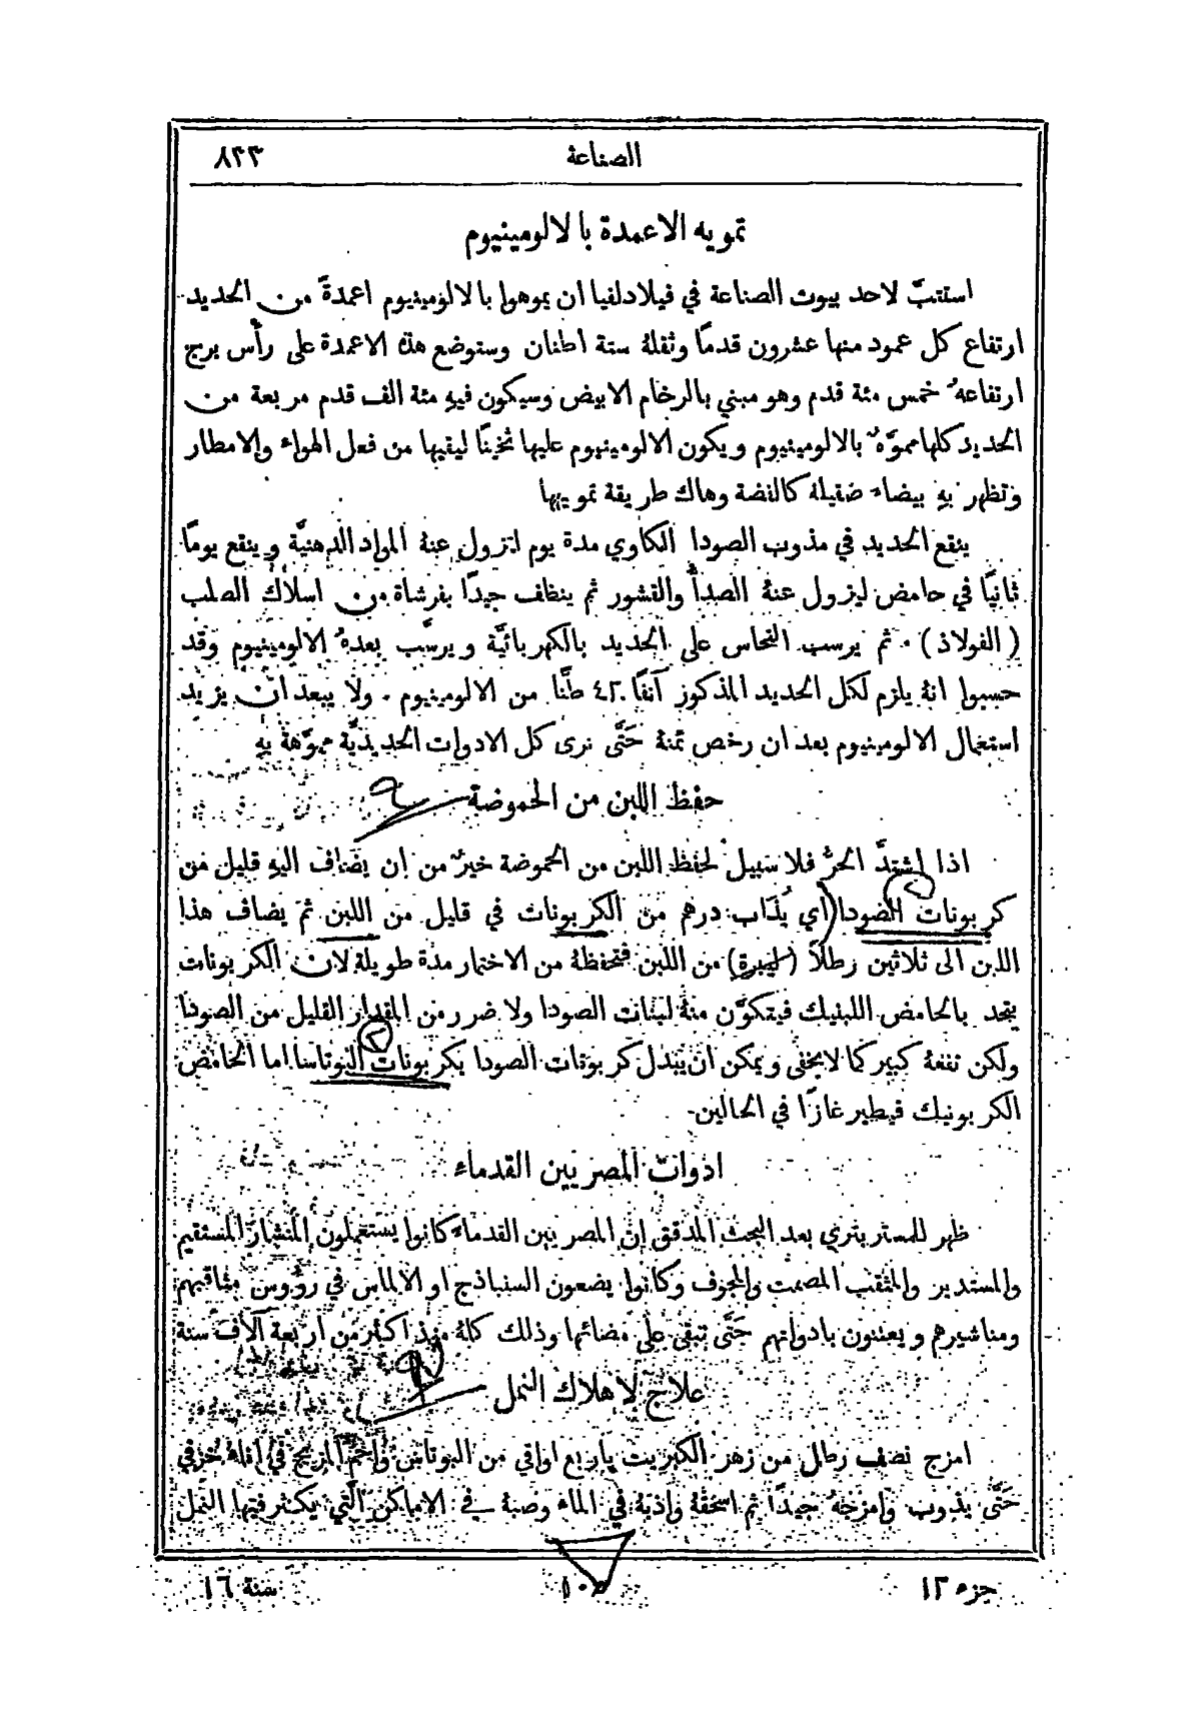 الصناعة ٨٣٣
تمويه الاعمدة بالالومينيوم
استتبَّ لاحد بيوت الصناعة في فيلادلفيا ان يموهوا بالالومينيوم اعمدةً من الحديد
ارتفاع كل عمود منها عشرون قدمًا وثقلهُ ستة اطنان وستوضع هذه الاعمدة على رأس برج
ارتفاعهُ خمس مئة قدم وهو مبني بالرخام الابيض وسيكون فيهِ مئة الف قدم مربعة من
الحديد كلها مموَّهٌ بالالومينيوم ويكون الالومينيوم عليها ثخينًا ليقيها من فعل الهواء والامطار
وتظهر بهِ بيضاء صقيلة كالفضة وهاك طريقة تمويهها
ينقع الحديد في مذوب الصودا الكاوي مدة يوم لتزول عنهُ المواد الدهنيَّة وينقع يومًا
ثانيًا في حامض ليزول عنهُ الصدأُ والقشور ثم ينظف جيدًا بفرشاة من اسلاك الصلب
(الفولاذ) . ثم يرسب النحاس على الحديد بالكهربائيَّة ويرسَّب بعدهُ الالومينيوم وقد
حسبوا انهُ يلزم لكل الحديد المذكور آنفًا طنًّا من الالومينيوم . ولا يبعد ان يزيد
استعمال الالومينيوم بعد ان رخص ثمنهُ حتَّى نرى كل الادوات الحديديَّة مموَّهة بهِ
حفظ اللبن من الحموضة
اذا اشتدَّ الحرُّ فلا سبيل لحفظ اللبن من الحموضة خيرٌ من ان يضاف اليهِ قليل من
كربونات الصودا اي يُذاب درهم من الكربونات في قليل من اللبن ثم يضاف هذا
اللبن الى ثلاثين رطلاً (ليبرة) من اللبن فتحفظهُ من الاختمار مدة طويلة لان الكربونات
يتحد بالحامض اللبنيك فيتكوَّن منهُ لبنات الصودا ولا ضرر من المقدار القليل من الصودا
ولكن نفعهُ كبير كما لا يخفى ويمكن ان يبدل كربونات الصودا بكربونات البوتاسا اما الحامض
الكربونيك فيطير غازًا في الحالين
ادوات المصريين القدماء
ظهر للمستر بتري بعد البحث المدقق ان المصريين القدماء كانوا يستعملون المنشار المستقيم
والمستدير والمثقب المصمت والمجوف وكانوا يضعون السنباذج او الالماس في رؤوس مثاقبهم
ومناشيرهم ويعتنون بادواتهم حتَّى تبقى على مضائها وذلك كلهُ منذ اكثر من اربعة آلاف سنة
علاج لاهلاك النمل
امزج نصف رطل من زهر الكبريت باربع اواقي من البوتاس واحمِ المزيج في إناء خزفي
حتَّى يذوب وامزجهُ جيدًا ثم اسحقهُ واذبهُ في الماء وصبهُ في الاماكن الَّتي يكثر فيها النمل
جزء ١٢ سنة ١٦